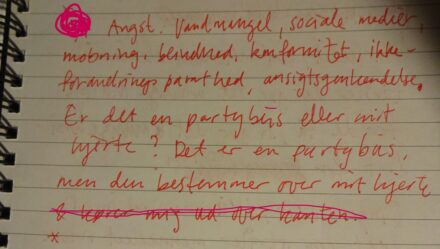 Angst. Vandmangel, sociale medier,
mobning, blindhed, konformitet, ikke-
forandringsparathed, ansigtsgenkendelse.
Er det en partybus eller mit
hjerte? Det er en partybus,
men den bestemmer over mit hjerte
& kører mig ud over kanten.
x